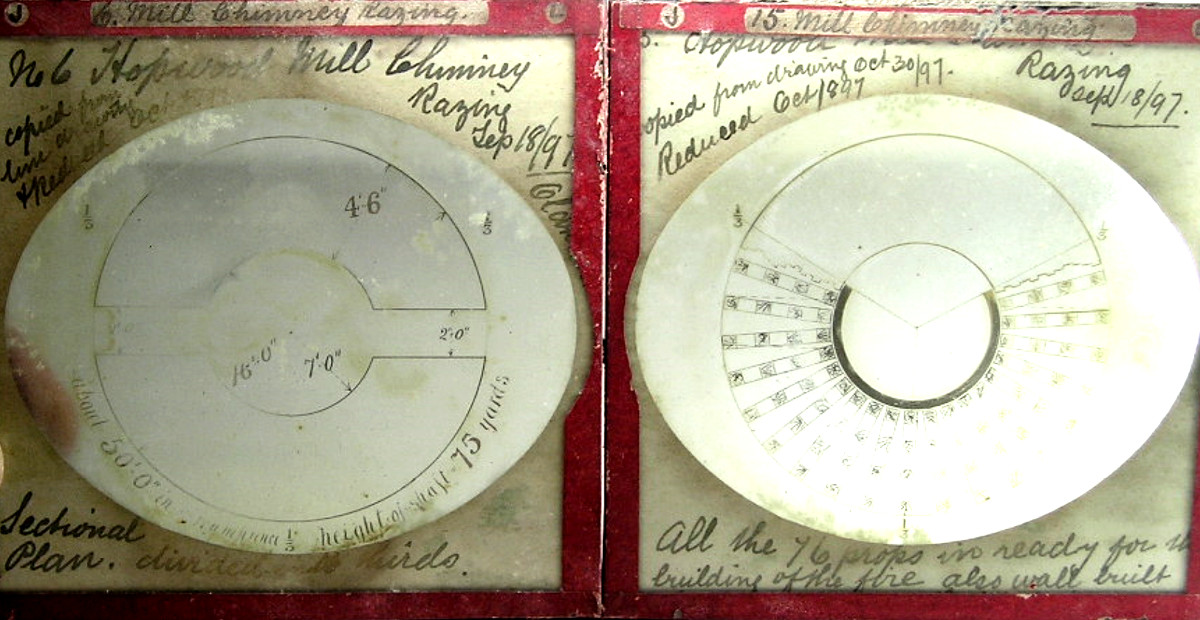 6. Mill Chimney Razing.
No 6 Hopwood Mill Chimney
Razing
Sep 18/97
copied from
Oct
1/3
1/3
4'·6"
2'·0"
16'·0"
7'·0"
about 50'·0" in circumference 1/3 height of shaft 75 yards
Sectional
Plan. divided thirds.
15. Mill Chimney Razing
Hopwood
Razing
Sep 18/97.
copied from drawing Oct 30/97.
Reduced Oct/897
1/3
1/3
1/3
All the 76 props in ready for
building of the fire also wall built